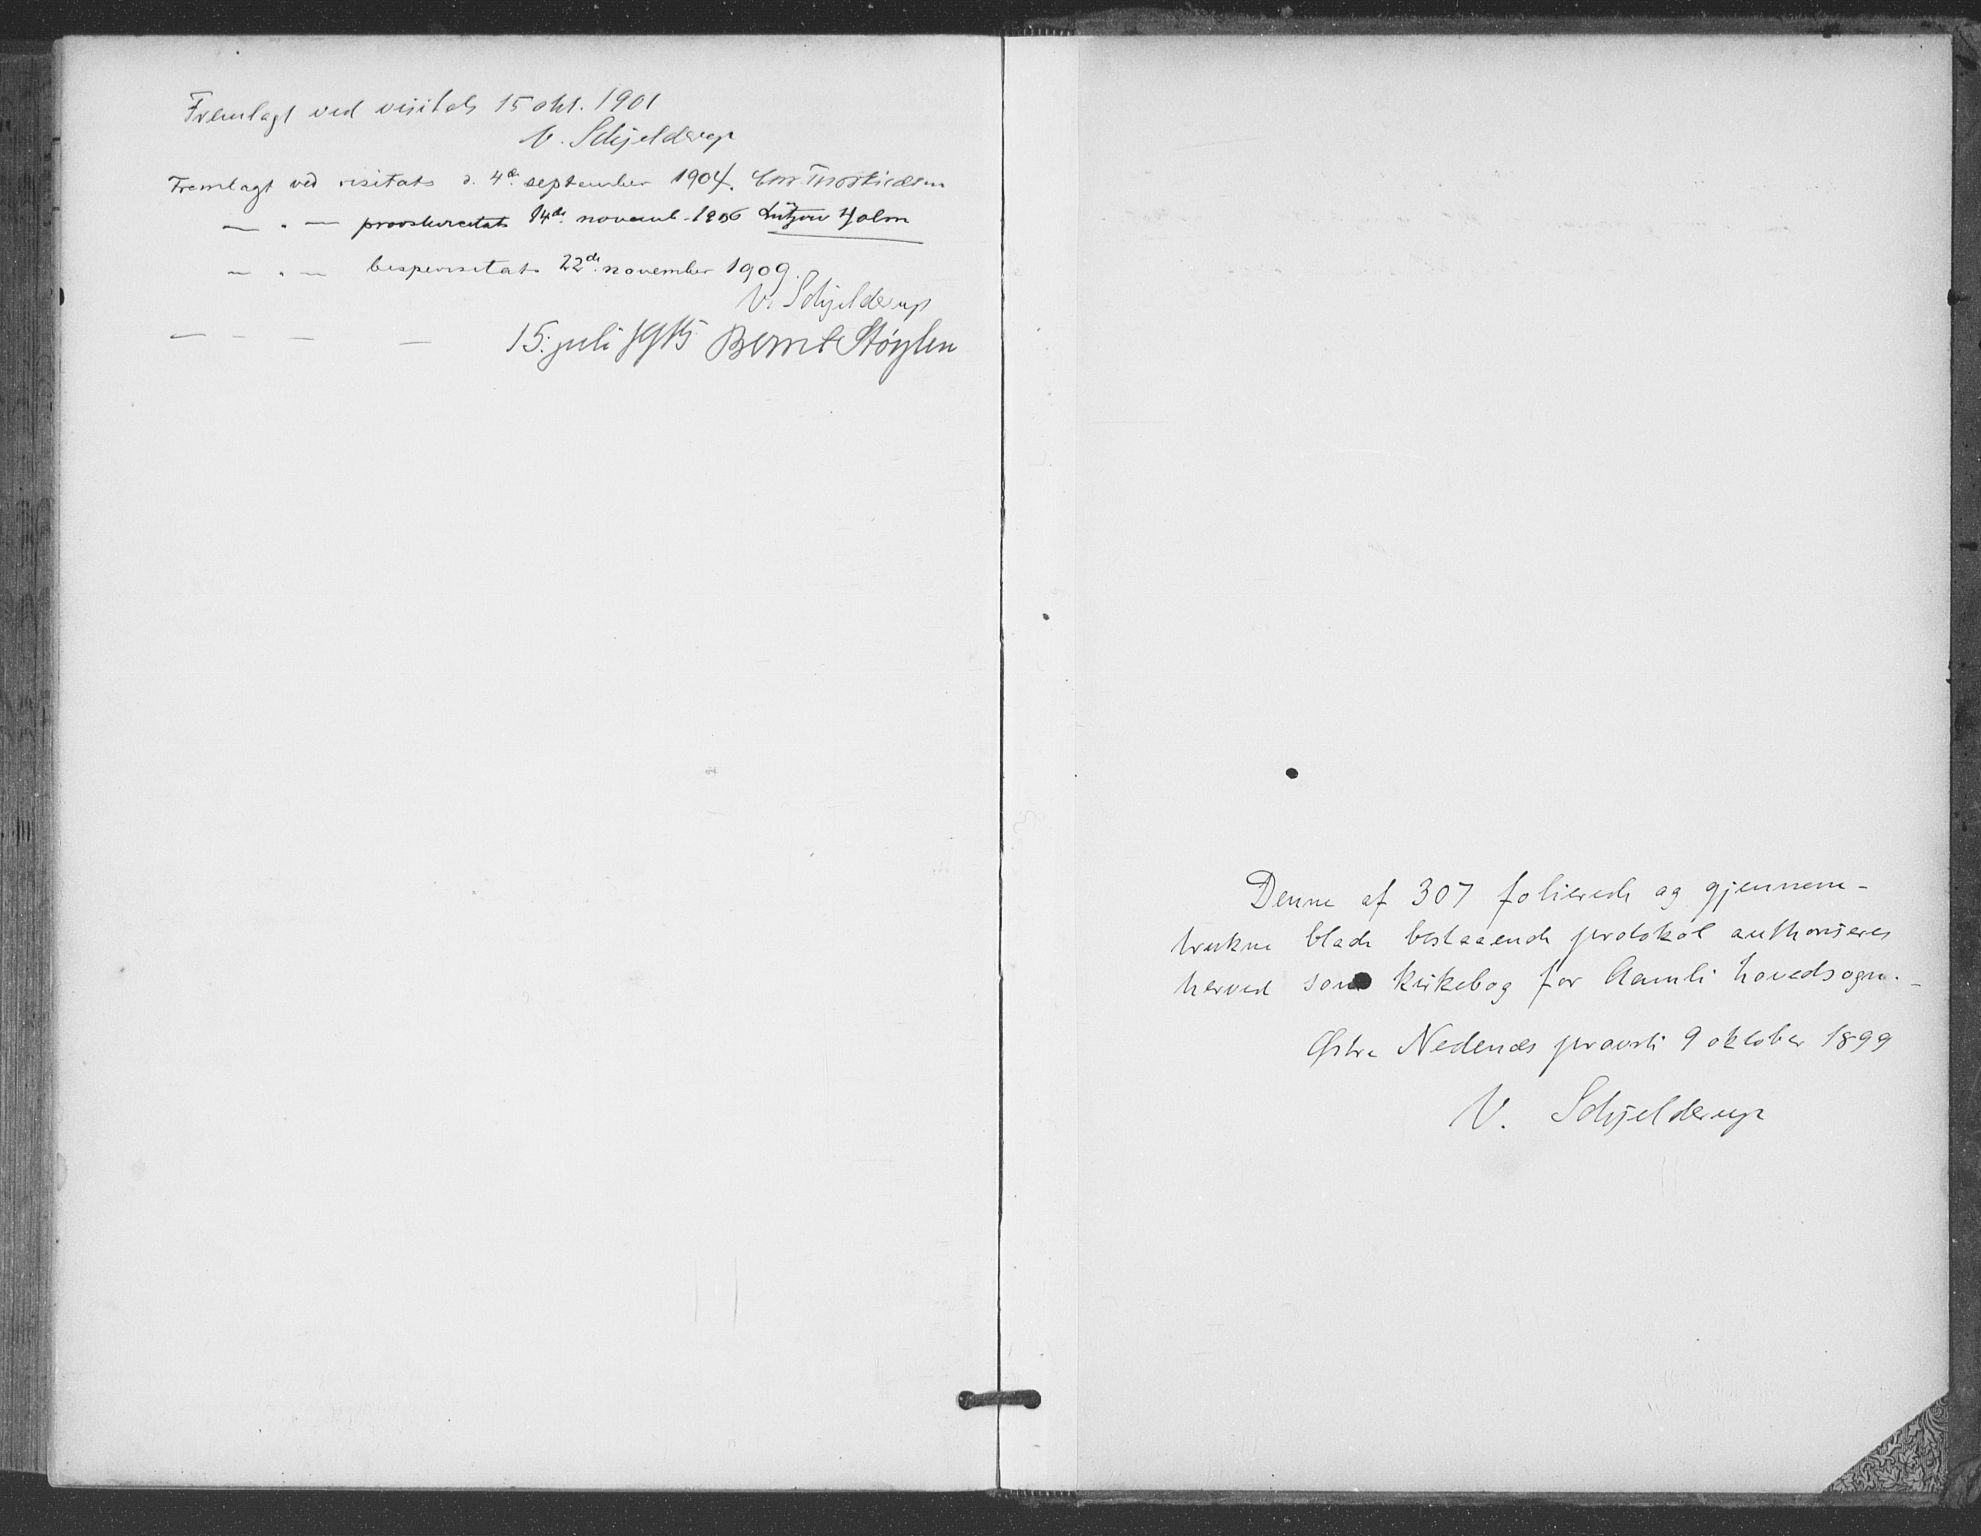 Fremlagt ved visitats 15 okt. 1901
V. Schjelderup
Fremlagt ved visitats d. 4de september 1904.
— " — proostevisitats 14de novemb. 1906 Lützow Holm
— " — bispevisitats 22de november 1909.
V. Schjelderup
— — — — 15. juli 1915 Bernt Støylen
Denne af 307 folierede og gjennem-
trukne blade bestaaende protokol authoriseres
herved som kirkebog for Aamli hovedsogn. —
Østre Nedenæs provsti 9 oktober 1899
V. Schjelderup